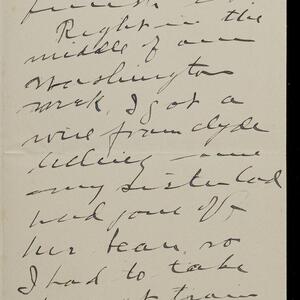 Right in the
middle of our
Washington
work, I got a
wire from Clyde
telling me
my sister had
had gone off
her bean, so
I had to take
train